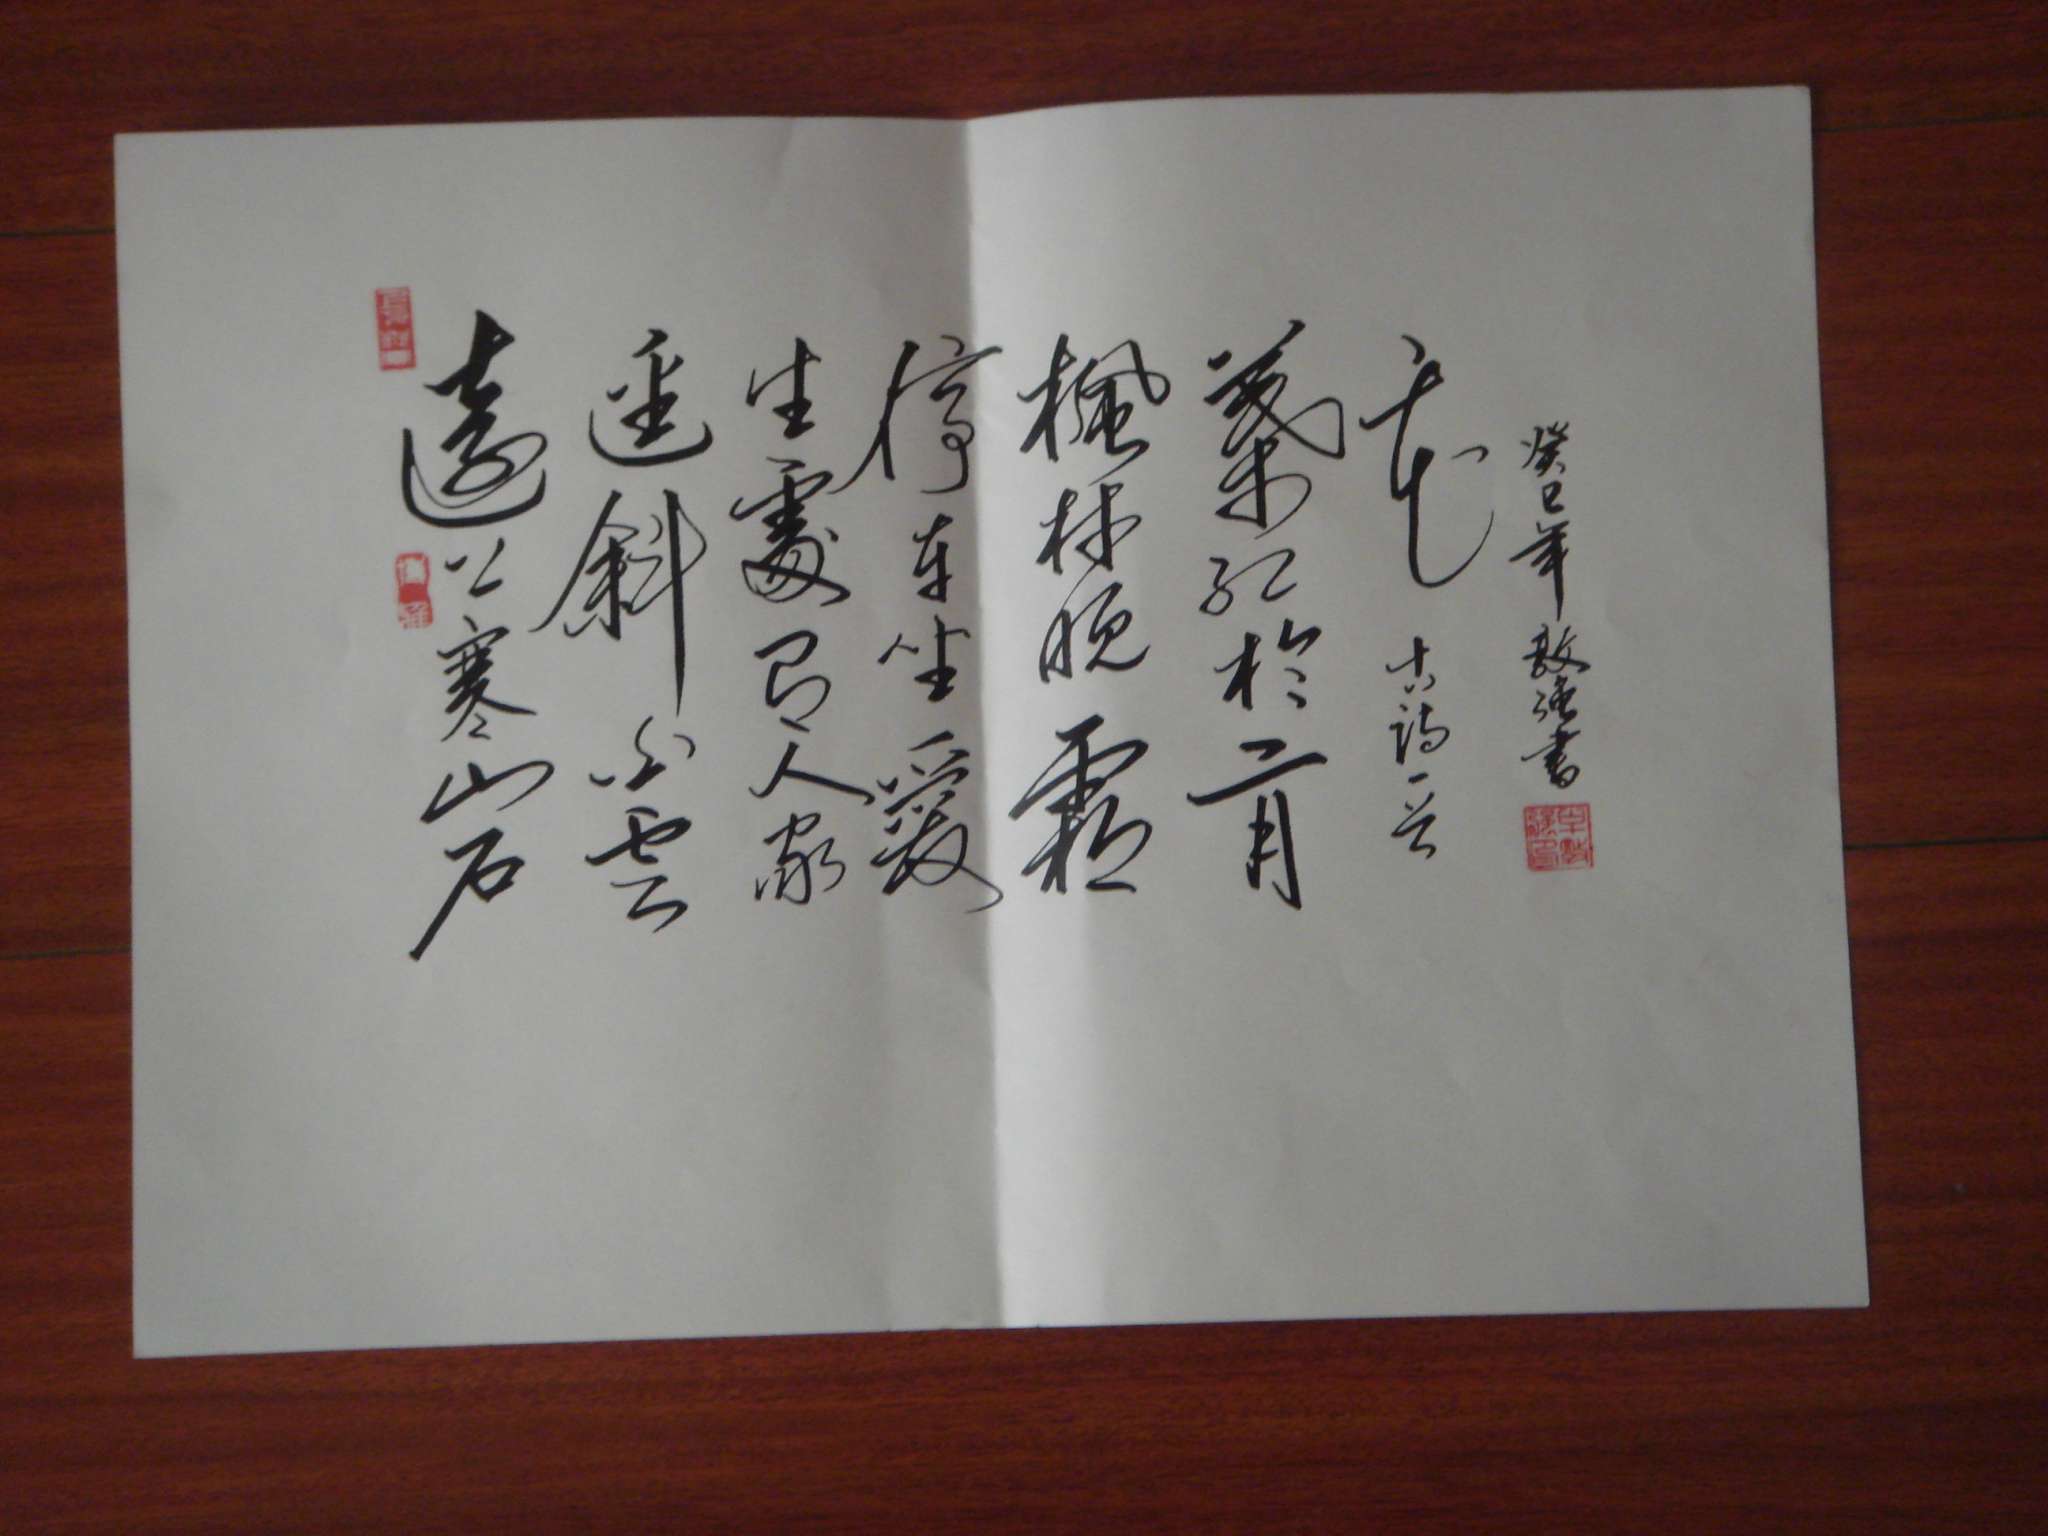 遠上寒山石
逕斜白雲
生處有人家
停車坐愛
楓林晚霜
葉紅於二月
花 古詩一首
癸巳年敬強書